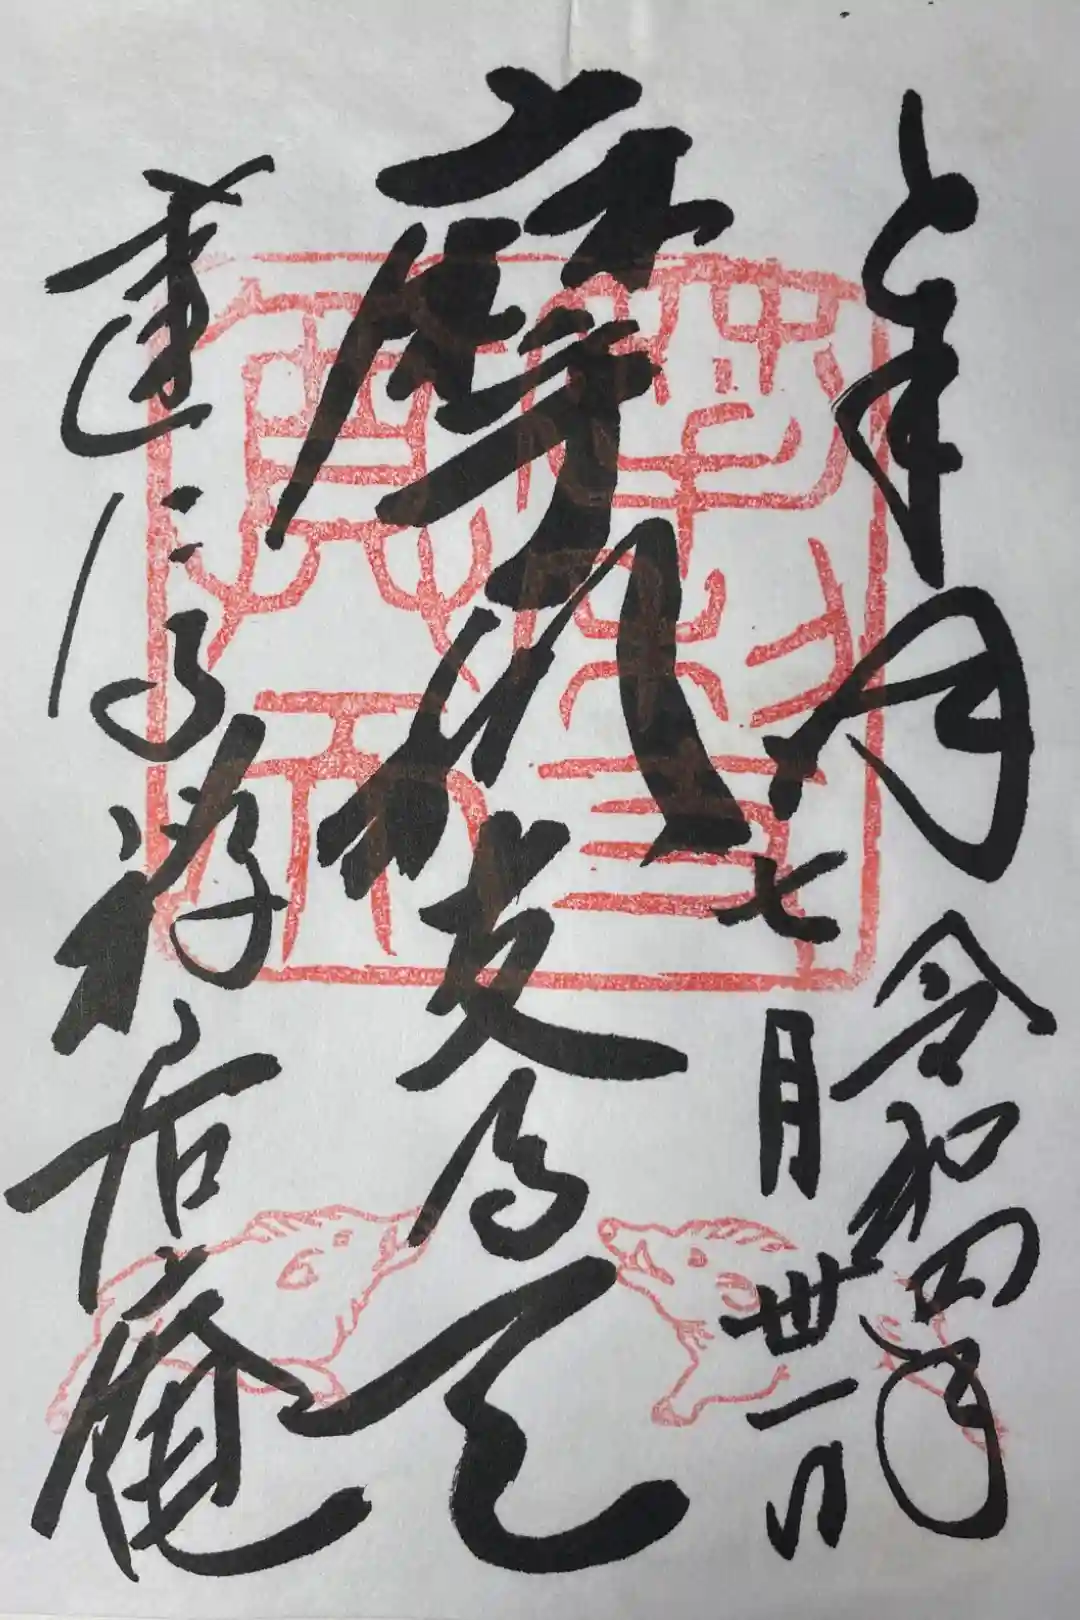 令和四年
七月丗一日
摩利支尊天
建仁寺禅居庵